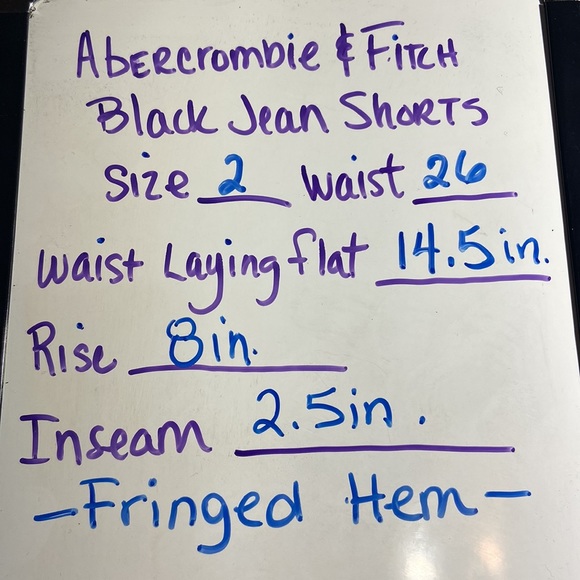 Abercrombie & Fitch
Black Jean Shorts
Size 2 Waist 26
Waist Laying flat 14.5 in.
Rise 8 in.
Inseam 2.5 in.
- Fringed Hem -